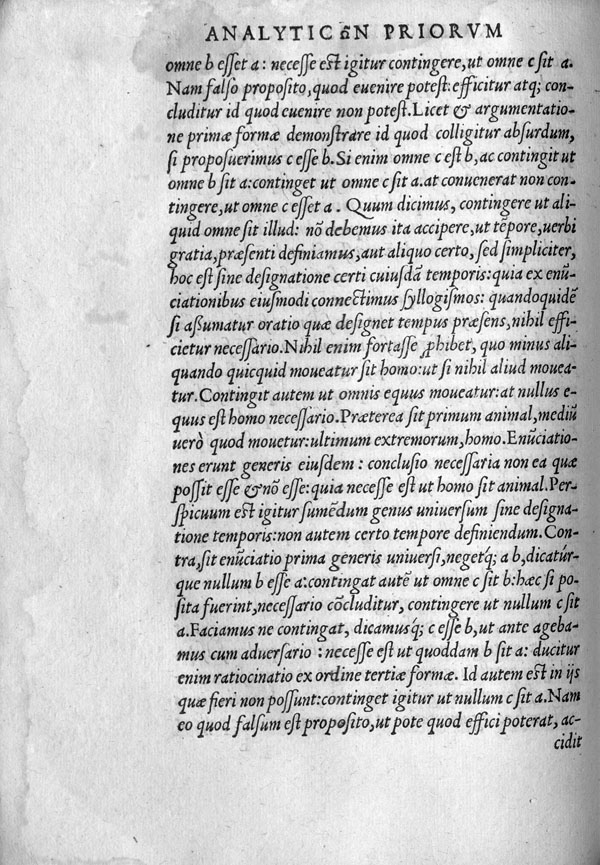 ANALYTICῶN PRIORVM
omne b esset a: necesse est igitur contingere, ut omne c sit a.
Nam falso proposito, quod euenire potest: efficitur atq; con-
cluditur id quod euenire non potest. Licet & argumentatio-
ne primæ formæ demonstrare id quod colligitur absurdum,
si proposuerimus c esse b. Si enim omne c est b, ac contingit ut
omne b sit a: continget ut omne c sit a. at conuenerat non con-
tingere, ut omne c esset a. Quum dicimus, contingere ut ali-
quid omne sit illud: nõ debemus ita accipere, ut tẽpore, uerbi
gratia, præsenti definiamus, aut aliquo certo, sed simpliciter,
hoc est sine designatione certi cuiusdã temporis: quia ex enũ-
ciationibus eiusmodi connectimus syllogismos: quandoquidẽ
si aßumatur oratio quæ designet tempus præsens, nihil effi-
cietur necessario. Nihil enim fortasse ꝓhibet, quo minus ali-
quando quicquid moueatur sit homo: ut si nihil aliud mouea-
tur. Contingit autem ut omnis equus moueatur: at nullus e-
quus est homo necessario. Præterea sit primum animal, mediũ
uerò quod mouetur: ultimum extremorum, homo. Enũciatio-
nes erunt generis eiusdem: conclusio necessaria non ea quæ
possit esse & nõ esse: quia necesse est ut homo sit animal. Per-
spicuum est igitur sumẽdum genus uniuersum sine designa-
tione temporis: non autem certo tempore definiendum. Con-
tra, sit enũciatio prima generis uniuersi, negetq́; a b, dicatúr-
que nullum b esse a: contingat autẽ ut omne c sit b: hæc si po-
sita fuerint, necessario cõcluditur, contingere ut nullum c sit
a. Faciamus ne contingat, dicamusq́; c esse b, ut ante ageba-
mus cum aduersario: necesse est ut quoddam b sit a: ducitur
enim ratiocinatio ex ordine tertiæ formæ. Id autem est in ijs
quæ fieri non possunt: continget igitur ut nullum c sit a. Nam
eo quod falsum est proposito, ut pote quod effici poterat, ac-
cidit